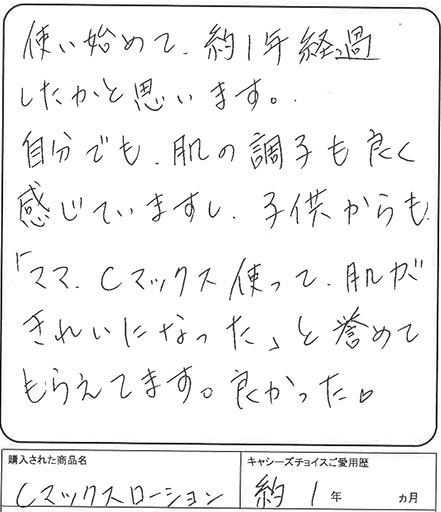 使い始めて、約1年経過
したかと思います。
自分でも、肌の調子も良く
感じていますし、子供からも
「ママ、Cマックス使って、肌が
きれいになった」と誉めて
もらえてます。良かった。
購入された商品名
キャシーズチョイスご愛用歴
Cマックスローション
約1年 ヵ月